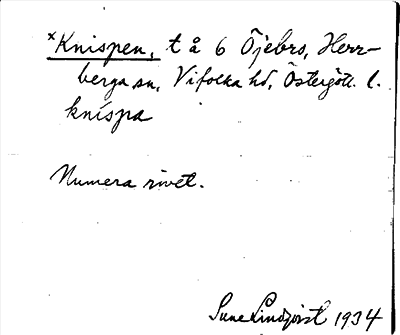 ×Knispen, t å 6 Öjebro, Herr-
berga sn, Vifolka hd, Östergötl. l.
knispa
Numera rivet.
Sune Lindqvist 1934